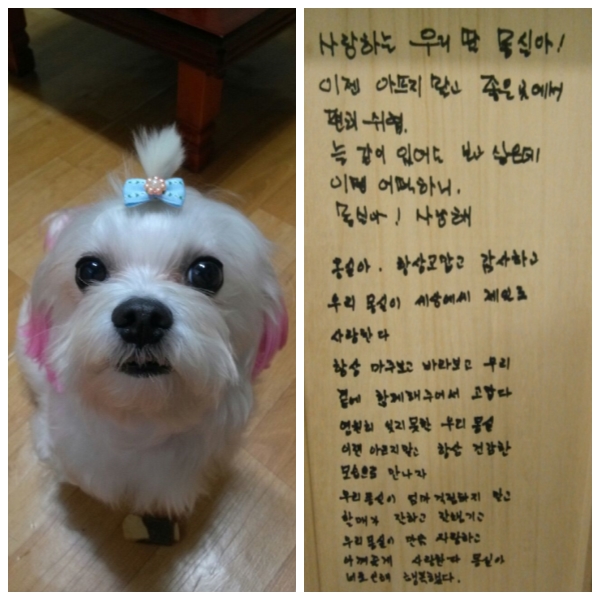 사랑하는 우리 딸 몽실아!
이젠 아프지 말고 좋은곳에서
편히 쉬렴.
늘 같이 있어도 보고 싶은데
이젠 어떡하니.
몽실아! 사랑해
몽실아. 항상고맙고 감사하고
우리 몽실이 세상에서 제일로
사랑한다
항상 마주보고 바라보고 우리
곁에 함께해주어서 고맙다
영원히 잊지못할 우리 몽실
이젠 아프지말고 항상 건강한
모습으로 만나자
우리몽실이 엄마걱정하지 말고
할매가 잘하고 잘챙기고
우리몽실이 만큼 사랑하고
아껴줄게 사랑한다 몽실아
너로인해 행복했다.